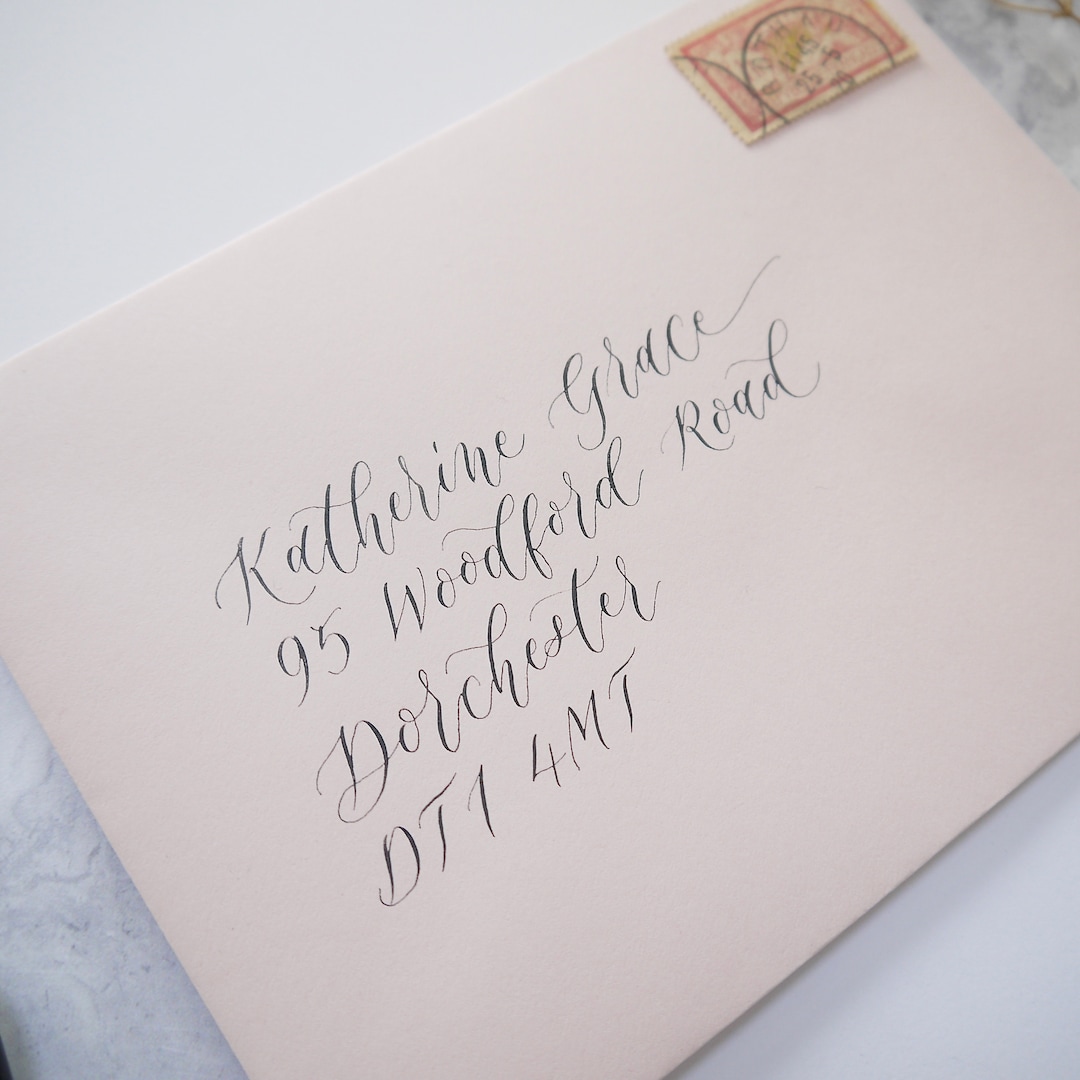 Katherine Grace
95 Woodford Road
Dorchester
DT1 4MT